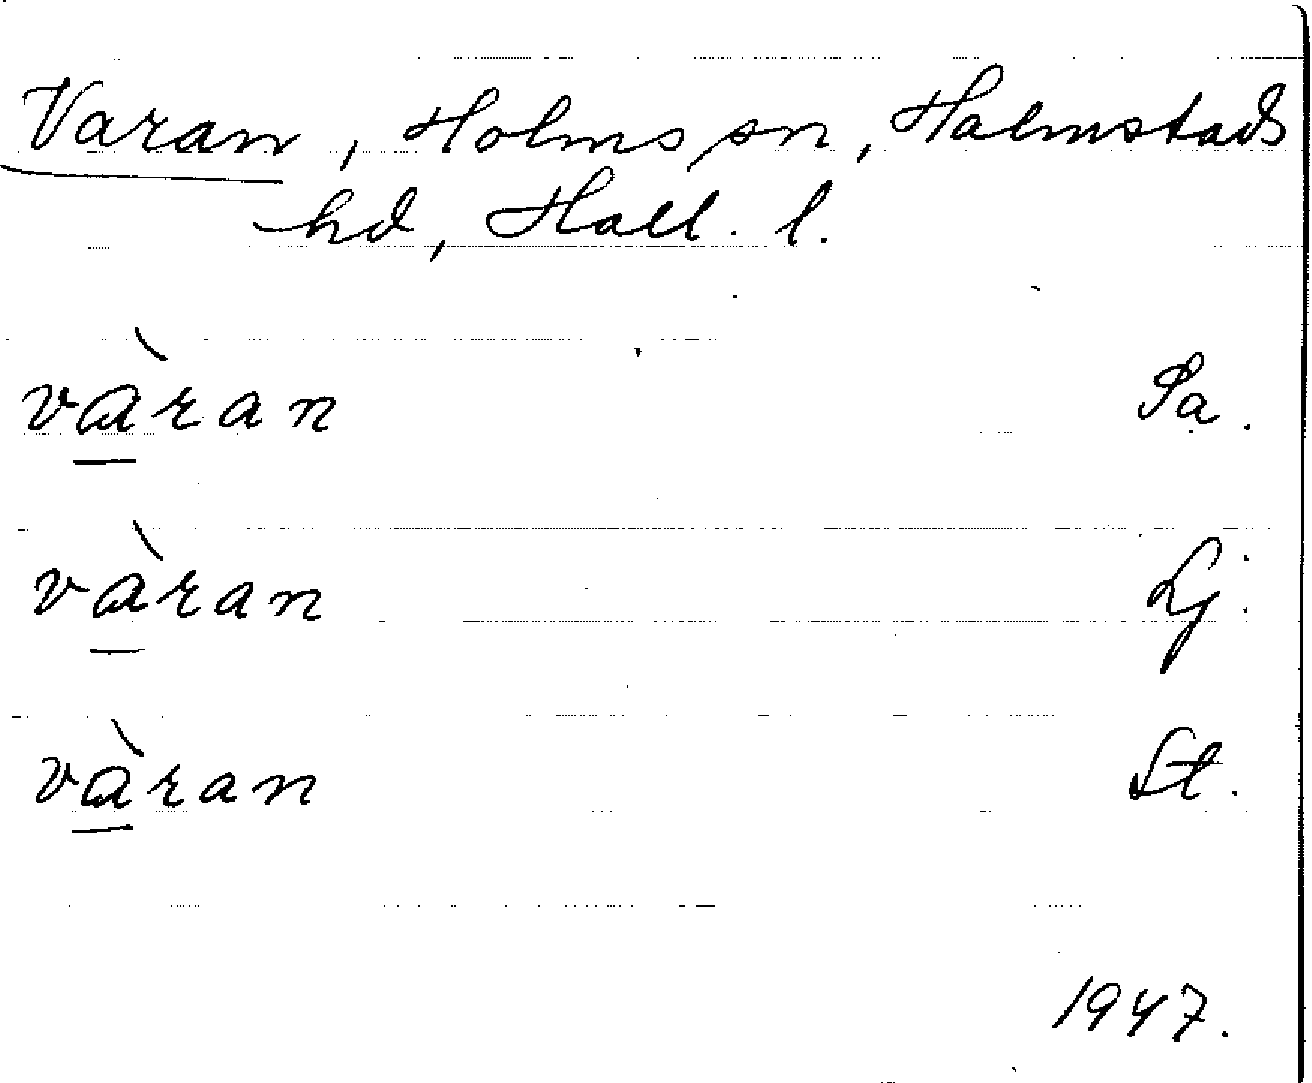 Varan, Holms sn, Halmstads
hd, Hall. l.
vàran Sa.
vàran Lj.
vàran St.
1947.